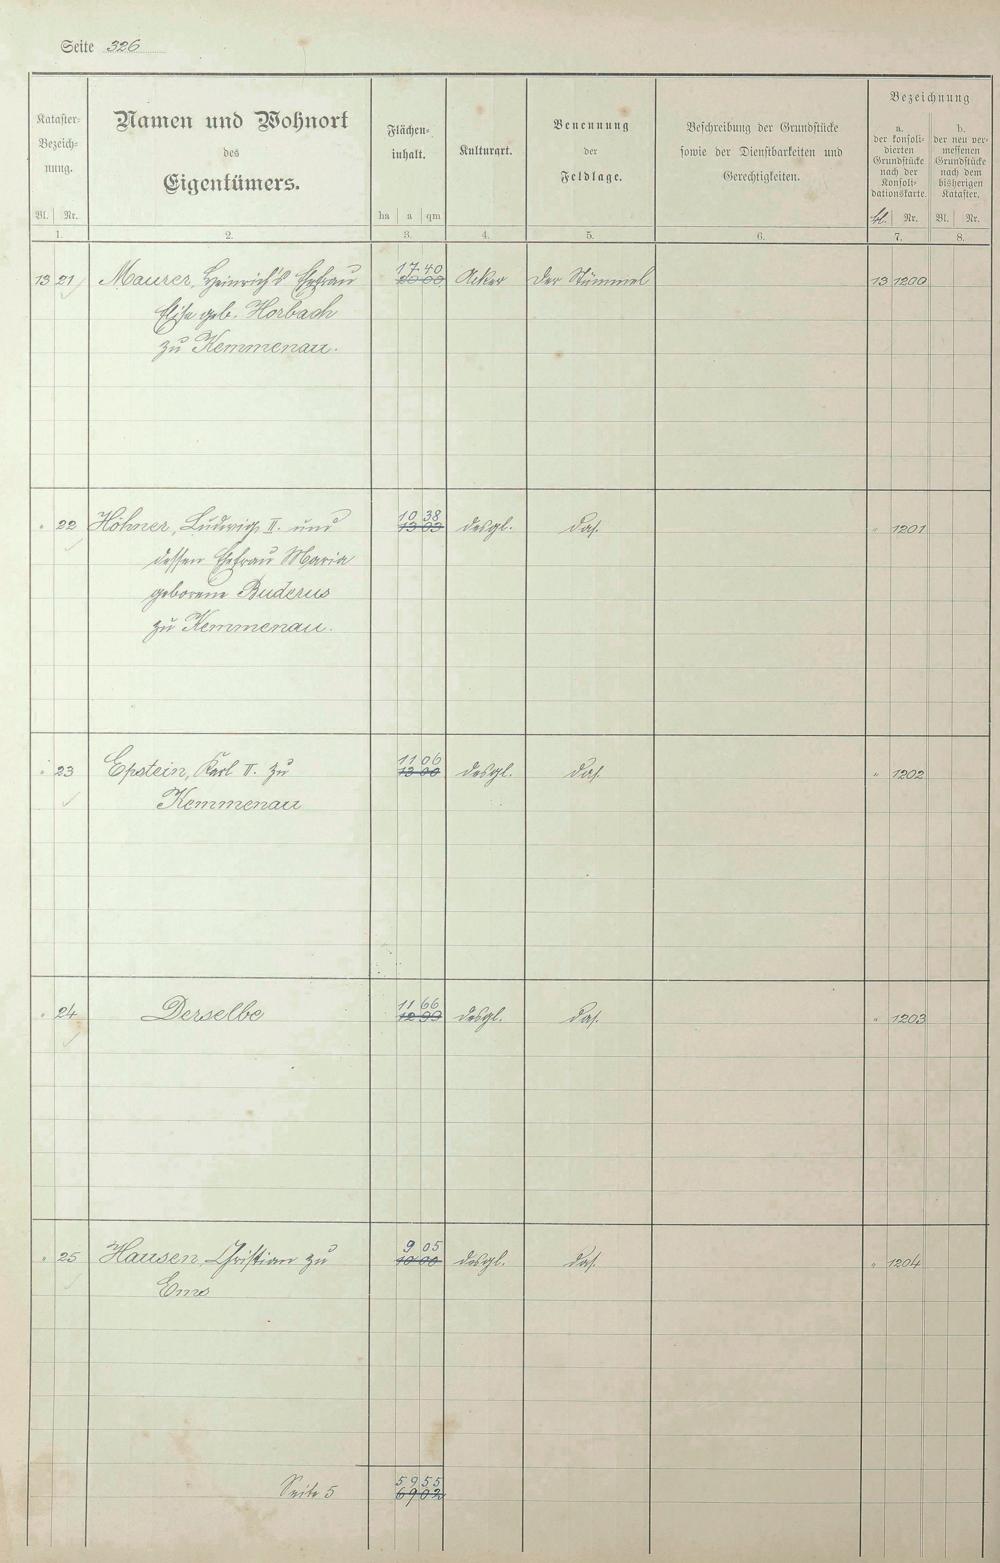 Seite 326
Kataster-Bezeich-nung.
Namen und Wohnort
des
Eigentümers.
Flächen-inhalt.
Kulturart.
Benennung
der
Feldlage.
Beschreibung der Grundstücke
sowie der Dienstbarkeiten und
Gerechtigkeiten.
Bezeichnung
a.
der konsoli-
dierten
Grundstücke
nach der
Konsoli-
dationskarte.
b.
der neu ver-
messenen
Grundstücke
nach dem
bisherigen
Kataster.
Bl. Nr. ha a qm bl. Nr. Bl. Nr.
1. 2. 3. 4. 5. 6. 7. 8.
17 40
13 21 Maurer, Heinrich's Ehefrau Acker Der Stümmel 13 1200
Elise geb. Horbach
zu Kemmenau.
10 38
" 22 Höhner, Ludwig II. und 13 03 desgl. das. " 1201
dessen Ehefrau Maria
geborene Buderus
zu Kemmenau.
11 06
" 23 Epstein, Karl II. zu 13 00 desgl. das. " 1202
Kemmenau
11 66
" 24 Derselbe 12 99 desgl. das. " 1203
9 05
" 25 Hausen, Christian zu 10 00 desgl. das. " 1204
Ems
59 55
Seite 5 69 02